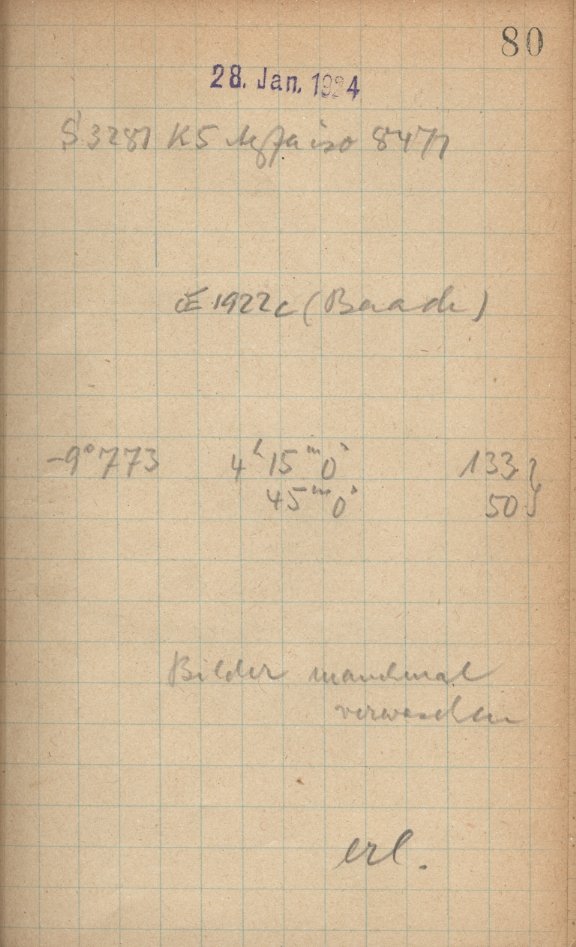 80
28. Jan. 1924
S 3281 K5 Agfa iso 8477
E 1922c (Baade)
-9°773 4ʰ15ᵐ0ˢ 133
45ᵐ0ˢ 50
Bilder manchmal
verwaschen
erl.